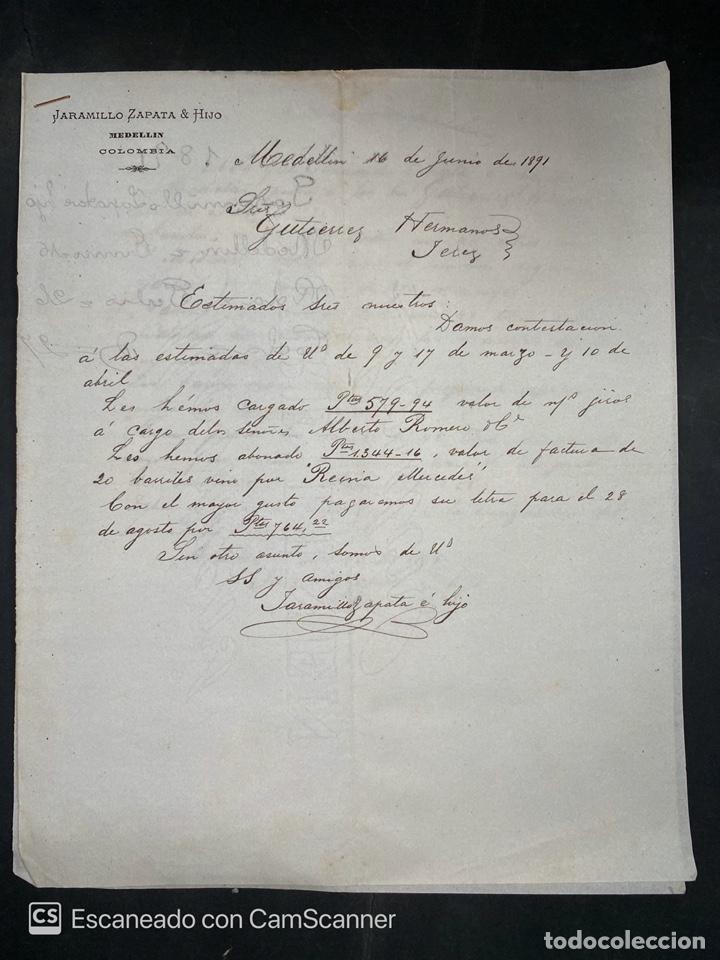 JARAMILLO ZAPATA & HIJO
MEDELLIN
COLOMBIA
Medellin 16 de Junio de 1891
Sres
Gutierrez Hermanos
Jerez
Estimados Sres nuestros:
Damos contestacion
á las estimadas de Uds de 9 y 17 de marzo - y 10 de
abril
Les hémos cargado Ptas 579-94 valor de n/s giros
á cargo de los señores Alberto Romero & Ca
Les hemos abonado Ptas 1.344-16, valor de factura de
20 barriles vino por "Reina Mercedes"
Con el mayor gusto pagaremos su letra para el 28
de agosto por Ptas 764,22
Sin otro asunto, somos de Uds
SS y amigos
Jaramillo Zapata é hijo
CS Escaneado con CamScanner
todocoleccion